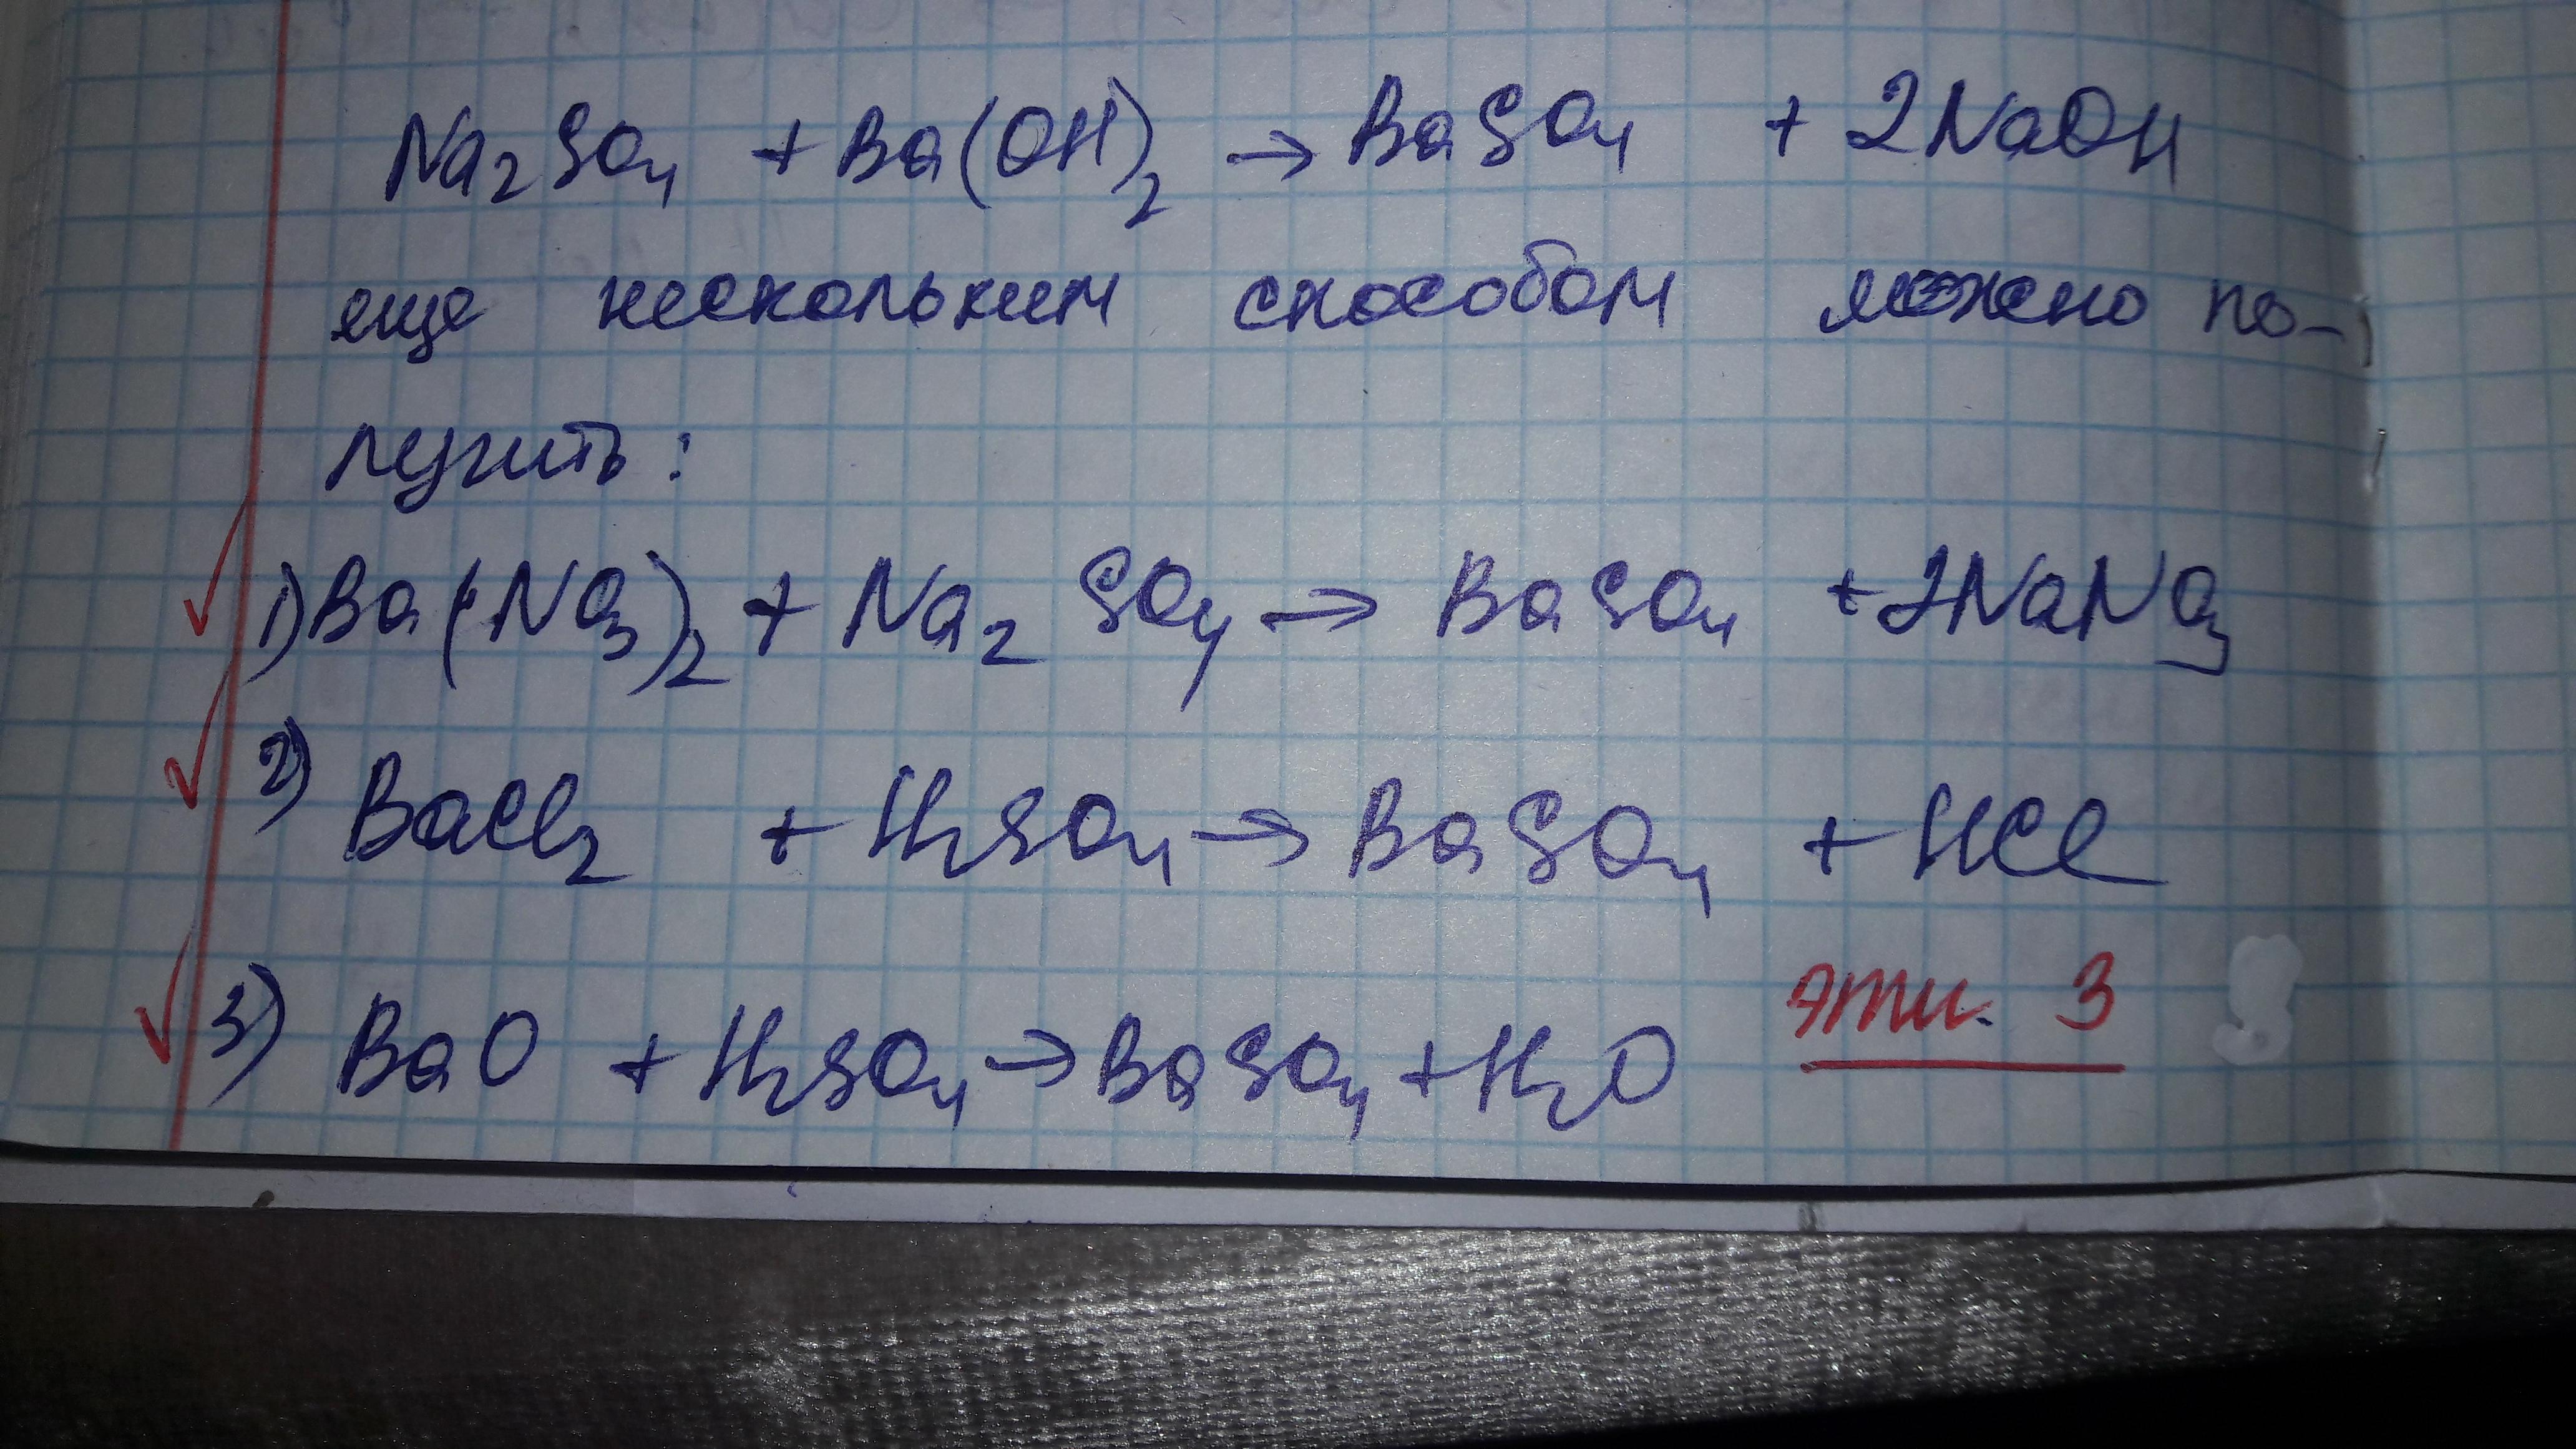 Na₂SO₄ + Ba(OH)₂ → BaSO₄ + 2NaOH
еще нескольким способом можно по-
лучить:
1) Ba(NO₃)₂ + Na₂SO₄ → BaSO₄ + 2NaNO₃
2) BaCl₂ + H₂SO₄ → BaSO₄ + HCl
3) BaO + H₂SO₄ → BaSO₄ + H₂O
эти. 3